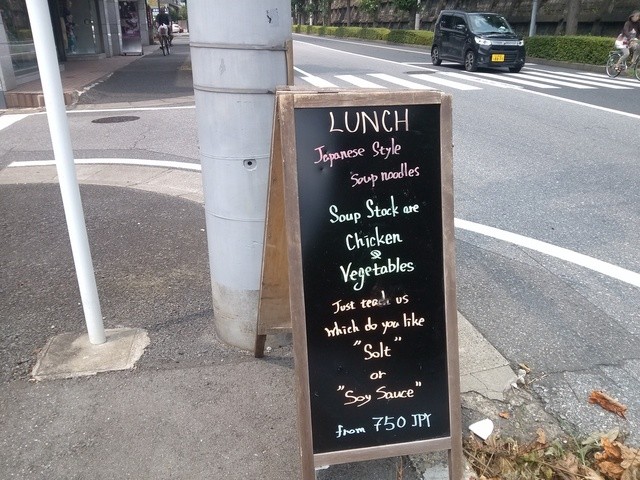 LUNCH
Japanese Style
Soup noodles
Soup Stock are
Chicken
&
Vegetables
Just teach us
which do you like
"Solt"
or
"Soy Sauce"
from 750 JPY